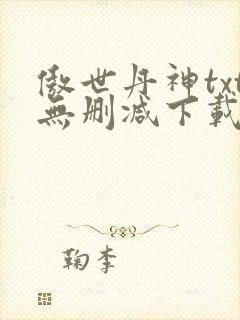 傲世丹神txt
無刪減下載
鞠李